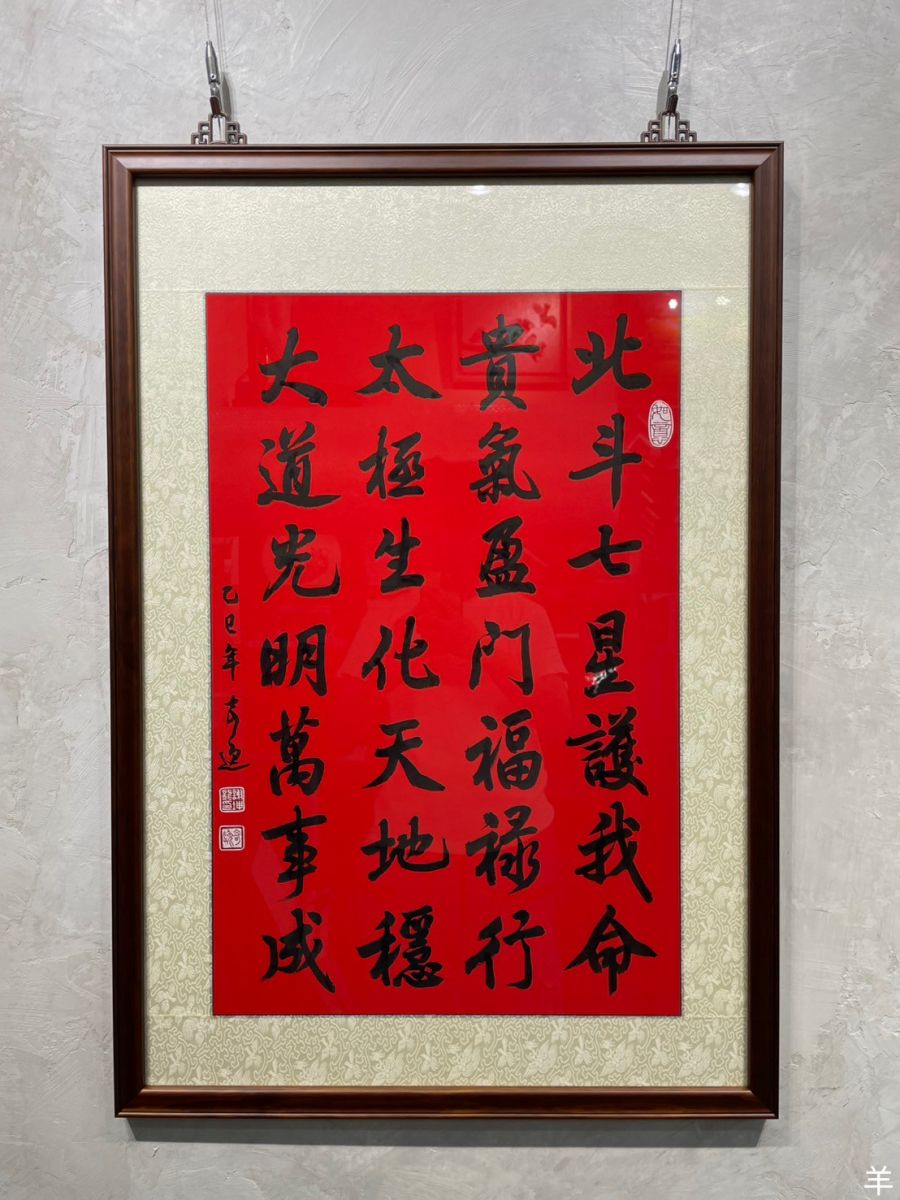 北斗七星護我命
貴氣盈門福禄行
太極生化天地穩
大道光明萬事成
乙巳年
如意
羊